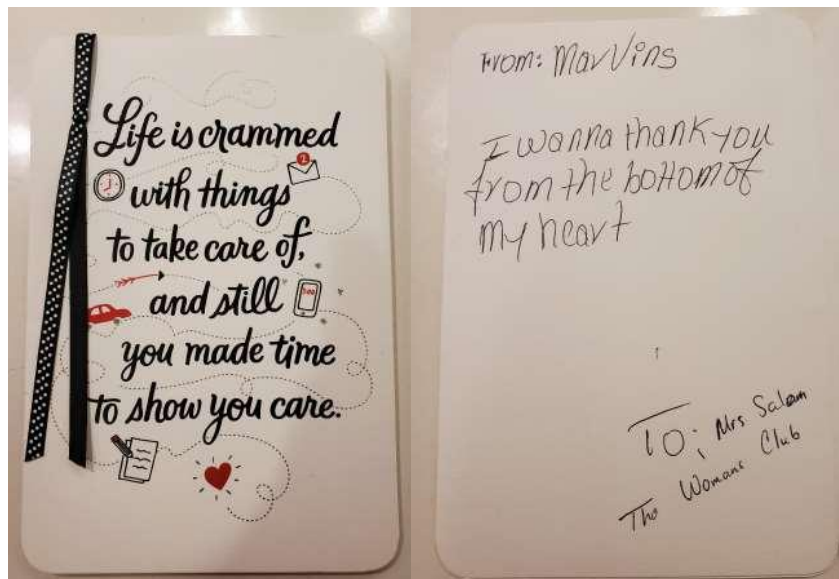 Life is crammed
with things
2
to take care of,
and still
you made time
to show you care.
From: Marvins
I wanna thank you
from the bottom of
my heart
To; Mrs Salem
The Womans Club